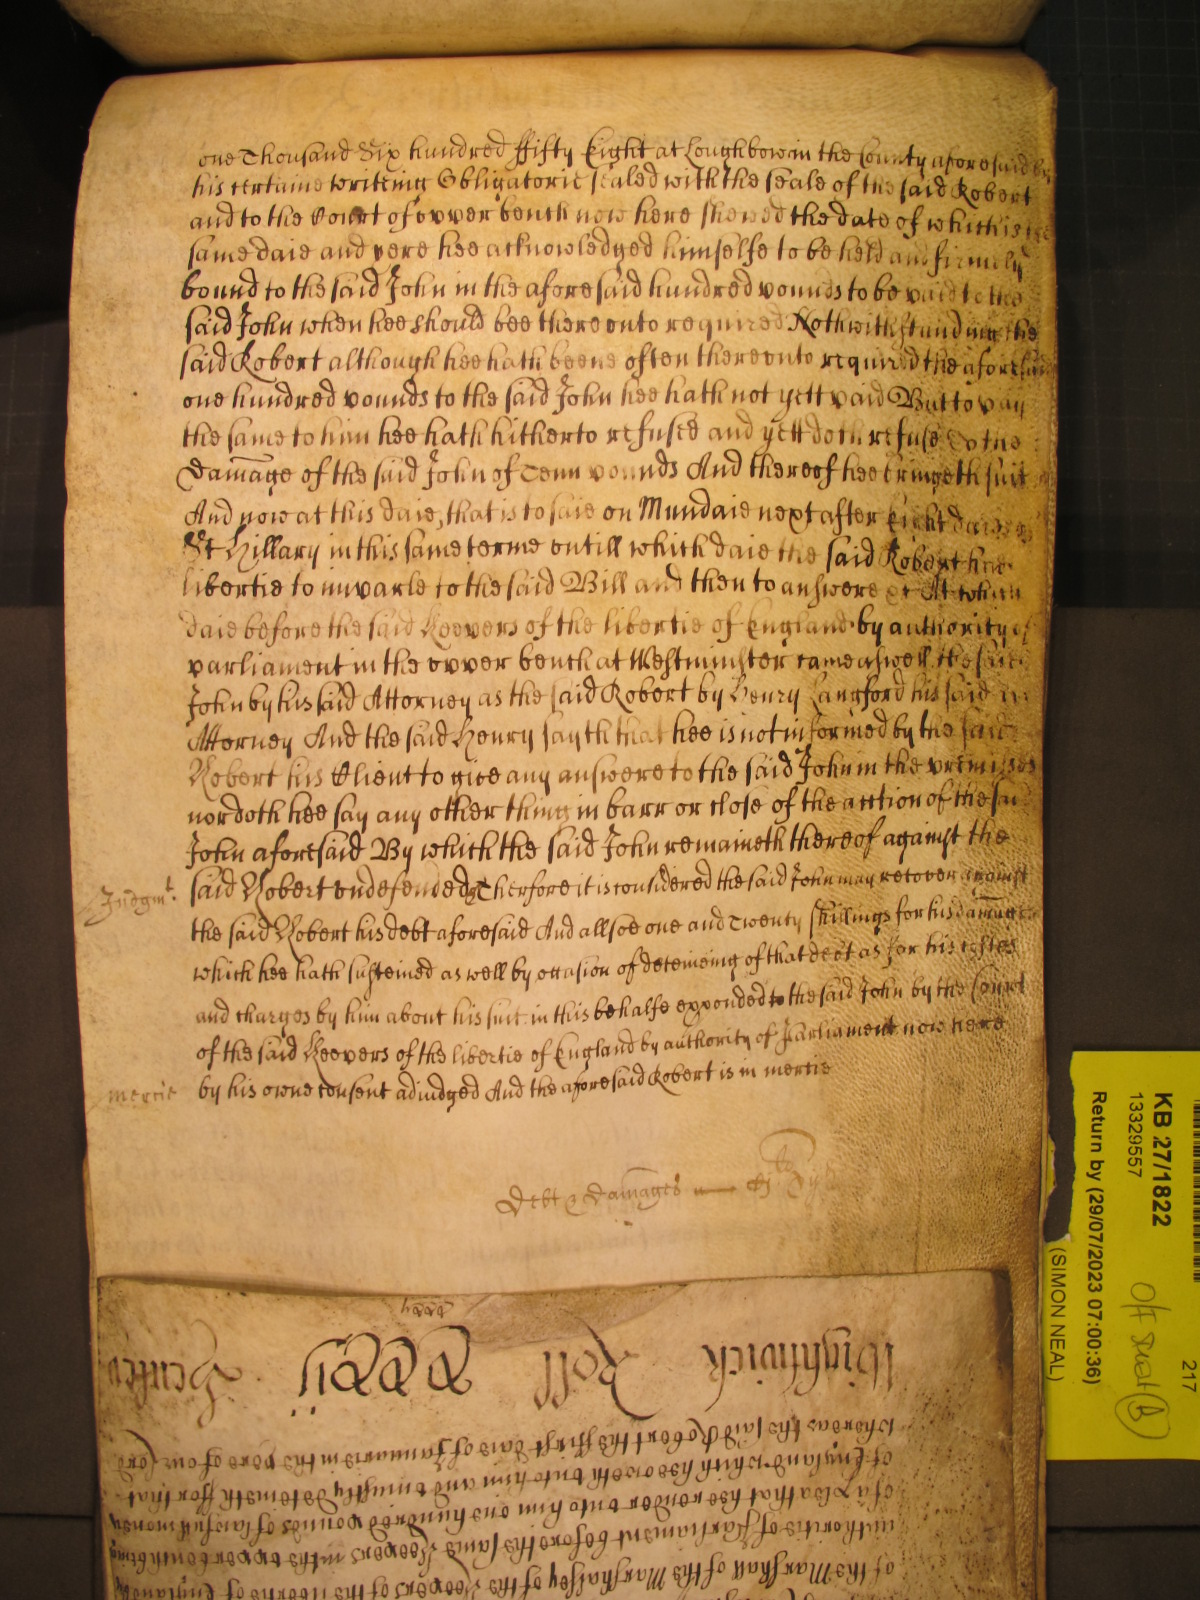 one Thousand Six hundred ffifty Eight at Loughborow in the County aforesaid by
his certaine writeing Obligatorie sealed with the seale of the said Robert
and to the Court of upper bench now here shewed the date of which is the
same daie and yere hee acknowledged himselfe to be held and firmely
bound to the said John in the aforesaid hundred pounds to be paid to the
said John when hee should bee thereonto required Nothwithstanding the
said Robert although hee hath beene often thereonto required the aforesaid
one hundred pounds to the said John hee hath not yett paid But to pay
the same to him hee hath hitherto refused and yett doth refuse To the
Damage of the said John of Tenn pounds And thereof hee bringeth suit
And now at this daie, that is to saie on Mundaie next after Eight daies of
St Hillary in this same terme untill which daie the said Robert had
libertie to imparle to the said Bill and then to answere &c At which
daie before the said Keepers of the libertie of England by authority of
parliament in the upper bench at Westminster came aswell the said
John by his said Attorney as the said Robert by Henry Langford his said
Attorney And the said Henry sayth that hee is not informed by the said
Robert his Client to give any answere to the said John in the premisses
nor doth hee say any other thing in barr or close of the action of the said
John aforesaid By which the said John remaineth thereof against the
Judgmt. said Robert undefended Therfore it is considered the said John may recover against
the said Robert his debt aforesaid And allsoe one and Twenty shillings for his damages
which hee hath susteined as well by occasion of deteineing of that debt as for his costes
and charges by him about his suit in this behalfe expended to the said John by the Court
of the said Keepers of the libertie of England by authority of Parliament now here
mercie by his owne consent adiudged And the aforesaid Robert is in mercie
Debt & Damages
Wightwick Roll
whereas the said Robert the ffirst daie of Januarie in the yere of our Lord
of England which hee oweth unto him and uniustly deteineth ffor that
of a plea that hee render unto him one hundred pounds of lawfull money
authoritie of Parliament before the same Keepers in the upper bench being
of the Marshall of the Marshalsey of the Keepers of the libertie of England
KB 27/1822
13329557
Return by (29/07/2023 07:00:36)
(SIMON NEAL)
217